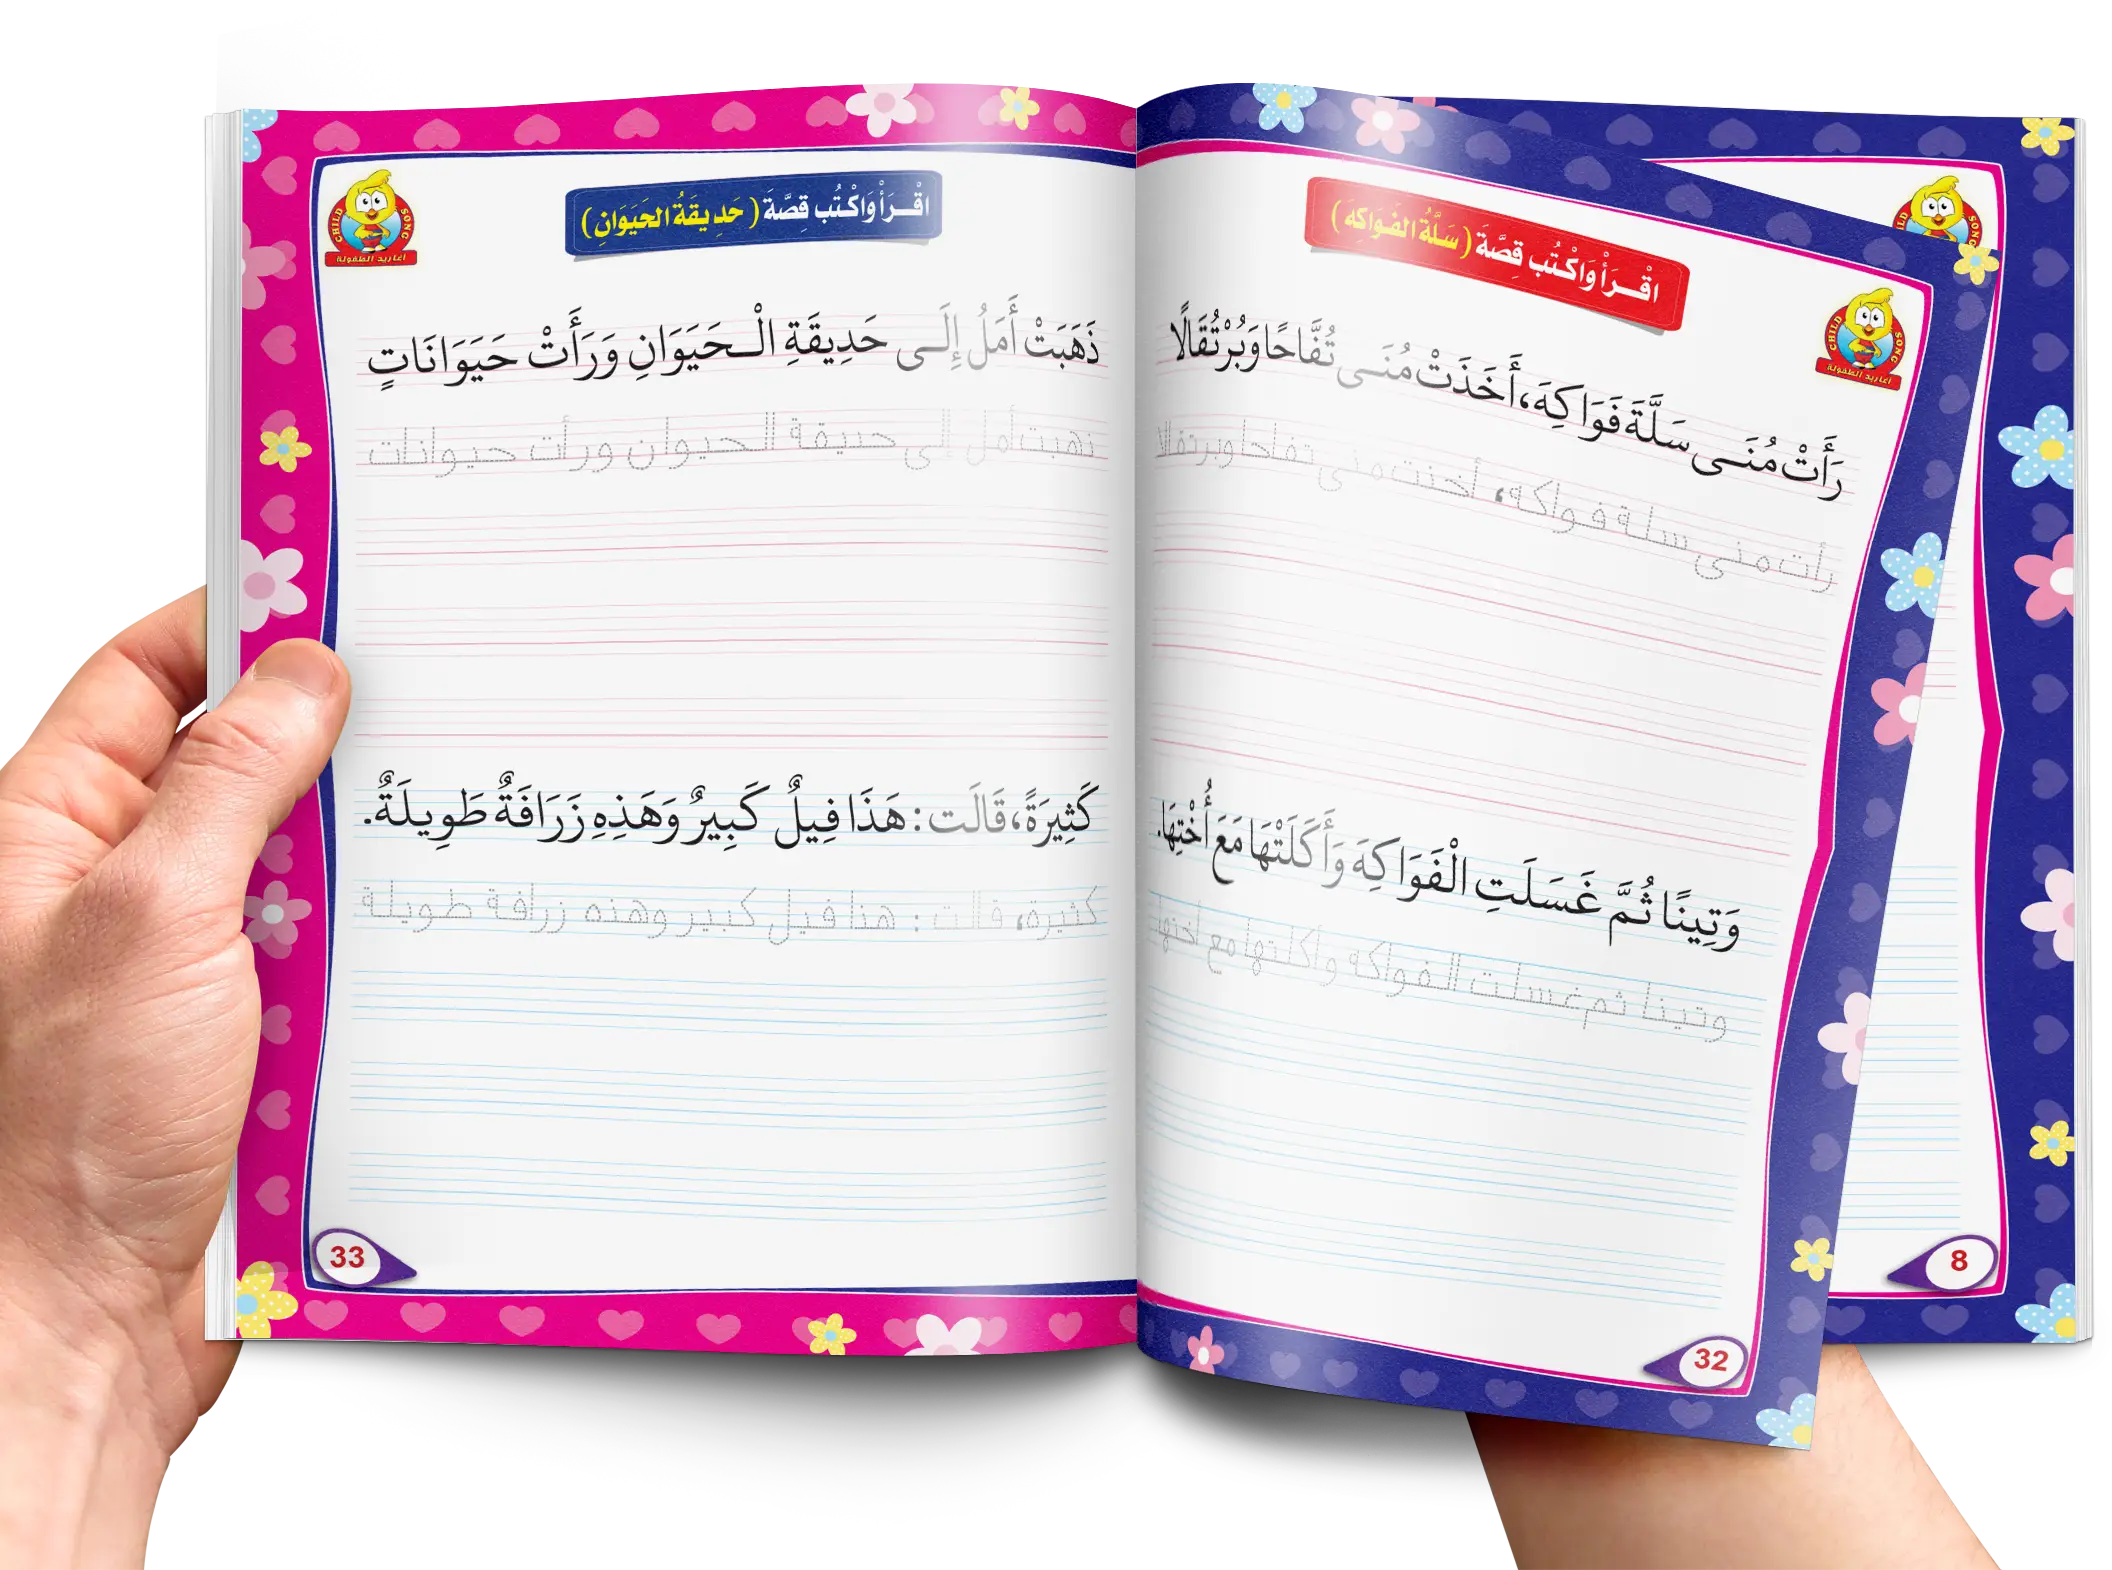 اقْـرَأْ وَاكْتُب قِصَّةَ (سَلَّةُ الفَواكِه)
CHILD SONG
اغاريد الطفولة
رَأَتْ مُنَـى سَلَّةَ فَوَاكِهَ، أَخَذَتْ مُنَـى تُفَّاحًا وَبُرْتُقَالًا
رأت منى سلة فواكه، أخذت منى تفاحا وبرتقالا
وَتِينًا ثُمَّ غَسَلَتِ الْفَوَاكِهَ وَأَكَلَتْهَا مَعَ أُخْتِهَا.
وتينا ثم غسلت الفواكه وأكلتها مع أختها
32
CHILD SONG
8
اقْـرَأْ وَاكْتُب قِصَّةَ (حَدِيقَةُ الحَيَوَانِ)
CHILD SONG
اغاريد الطفولة
ذَهَبَتْ أَمَلُ إِلَـى حَدِيقَةِ الْـحَيَوَانِ وَرَأَتْ حَيَوَانَاتٍ
ذهبت أمل إلى حديقة الحيوان ورأت حيوانات
كَثِيرَةً، قَالَت : هَذَا فِيلٌ كَبِيرٌ وَهَذِهِ زَرَافَةٌ طَوِيلَةٌ.
كثيرة، قالت : هذا فيل كبير وهذه زرافة طويلة
33